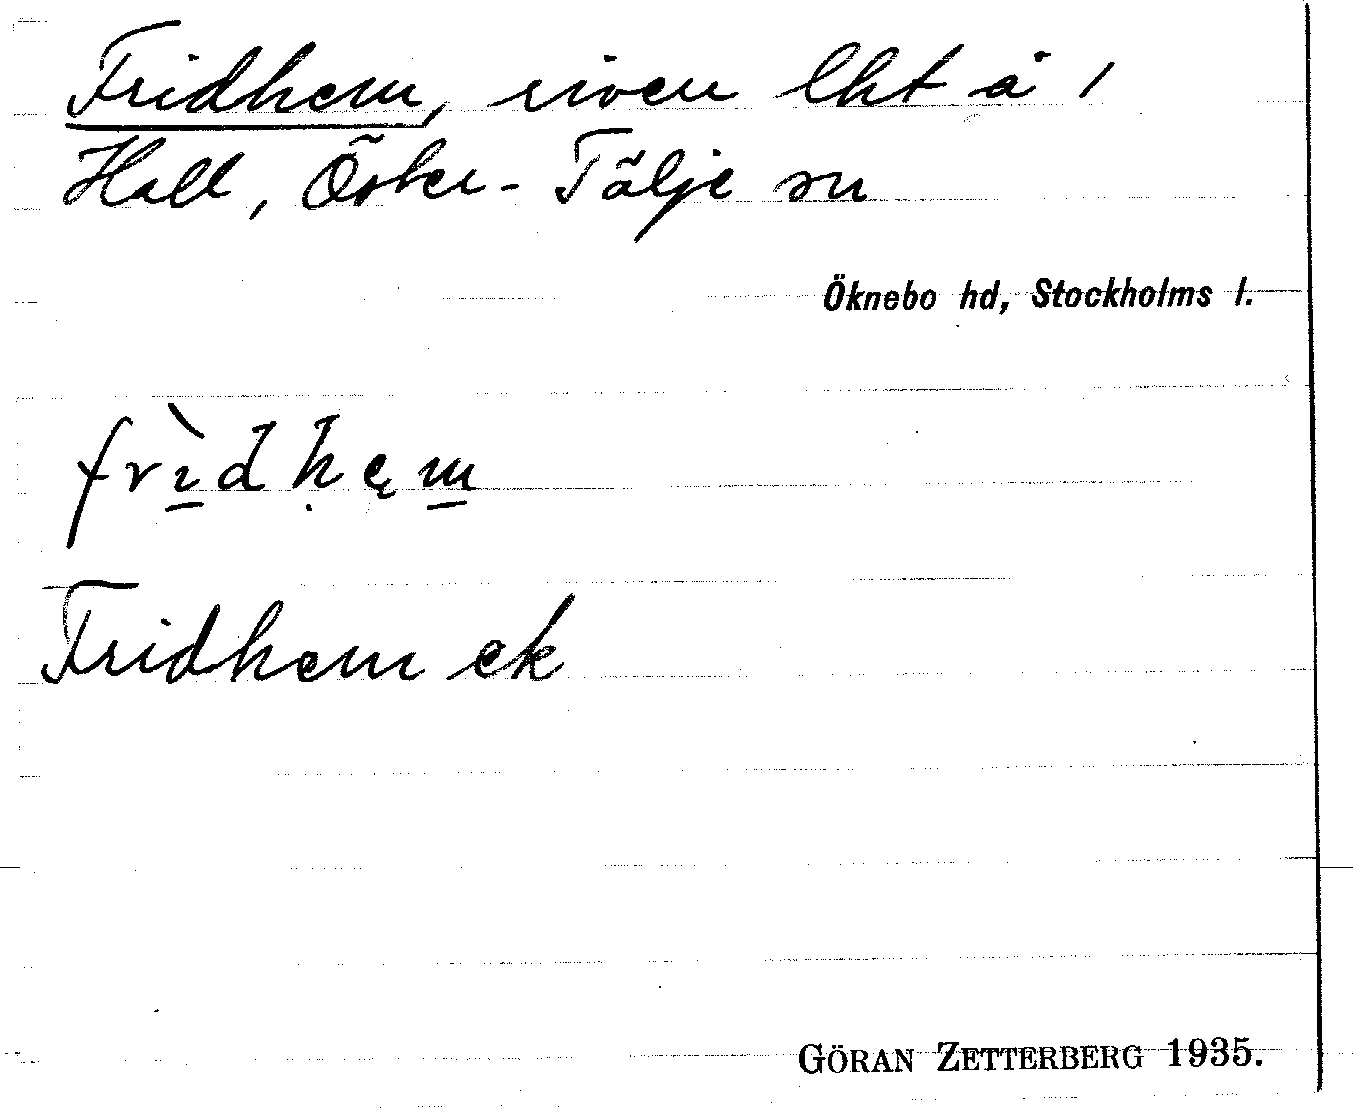 Fridhem, riven lht å 1
Hall, Öster-Tälje sn
Öknebo hd, Stockholms l.
frìdḥęm
Fridhem ek
GÖRAN ZETTERBERG 1935.